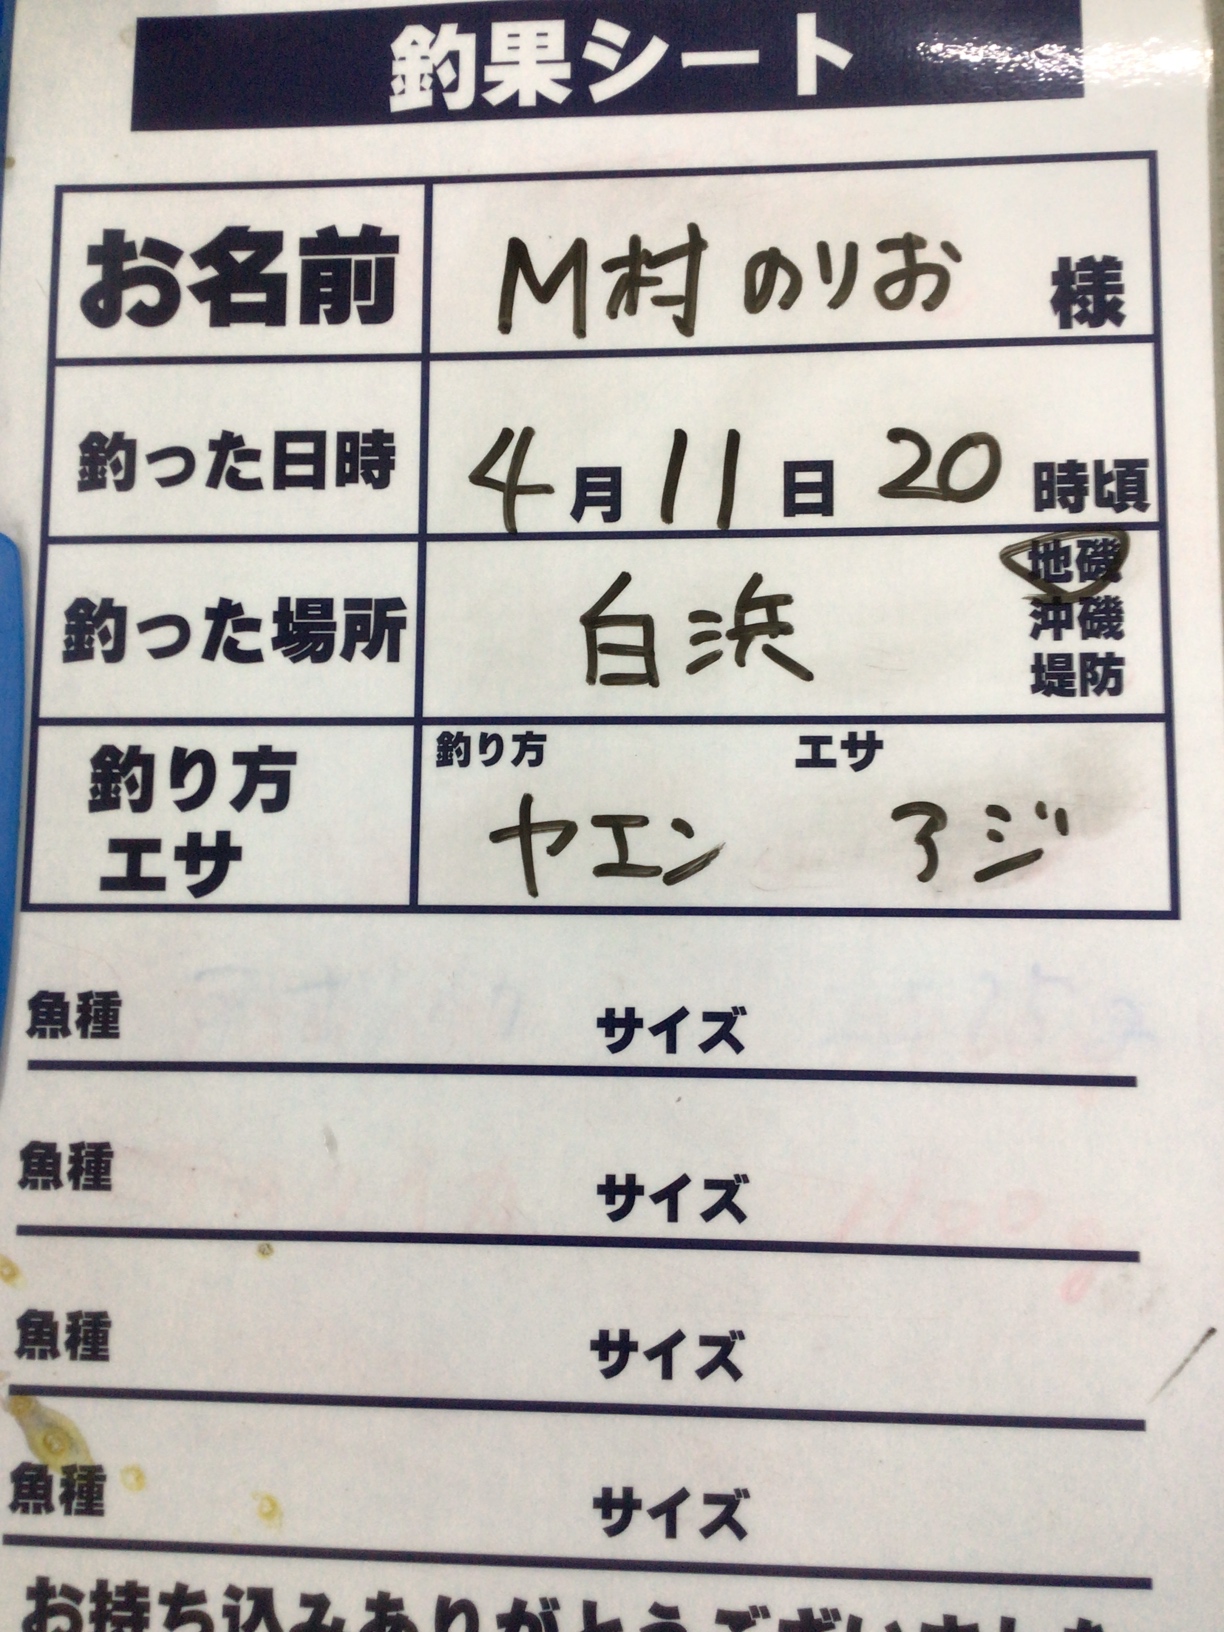 釣果シート
お名前 M村のりお 様
釣った日時 4月11日 20時頃
釣った場所 白浜 地磯
沖磯
堤防
釣り方 エサ
釣り方 ヤエン アジ
エサ
魚種 サイズ
魚種 サイズ
魚種 サイズ
魚種 サイズ
お持ち込みありがとうございました